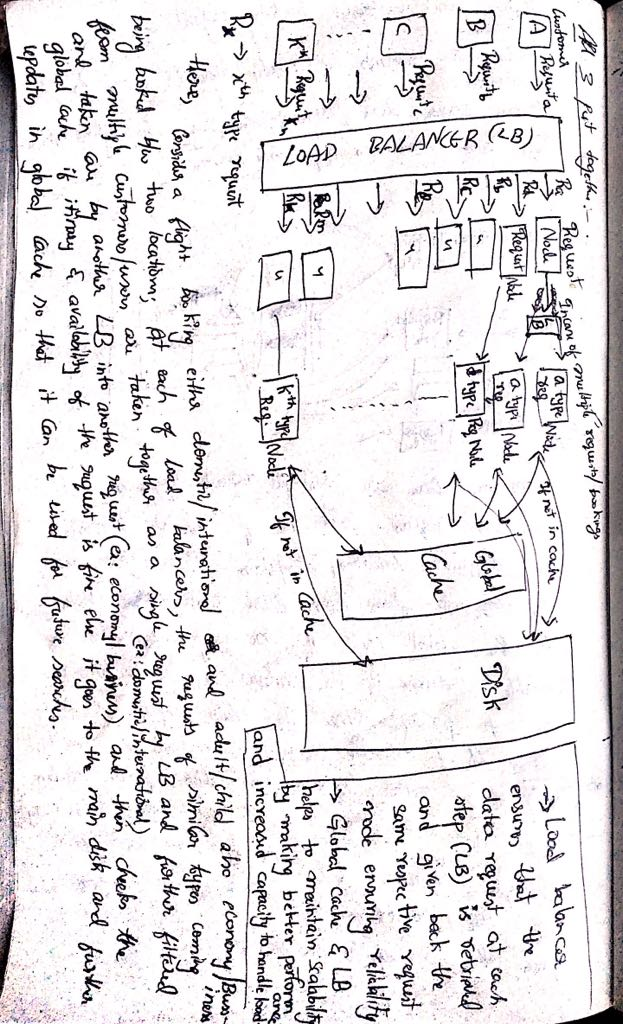 All 3 put together :-
Customer
A
Request a
B
Request b
C
Request c
Kth
Request Kth
LOAD BALANCER (LB)
Ra
Ra
Rb
Rc
Request Node
In case of multiple requests/bookings
LB
a type req. Node
a type req. Node
Request Node
type Req Node
Kth type Req. Node
If not in cache
Global Cache
If not in Cache
Disk
→ Load balancer
ensures that the
data request at each
step (LB) is retrieved
and given back the
same respective request
node ensuring reliability
→ Global cache & LB
helps to maintain scalability
by making better performance
and increased capacity to handle load
Rx → xth type request
Here, Consider a flight booking either domestic/international and adult/child also economy/Business
being booked b/w two locations; At each of load balancers, the requests of similar types coming
from multiple customers/users are taken together as a single request by LB and further filtered
(ex: domestic/international)
and taken care by another LB into another request (ex: economy/business) and then checks the
global cache if it may & availability of the request is fine else it goes to the main disk and further
updates in global cache so that it can be used for future searches.